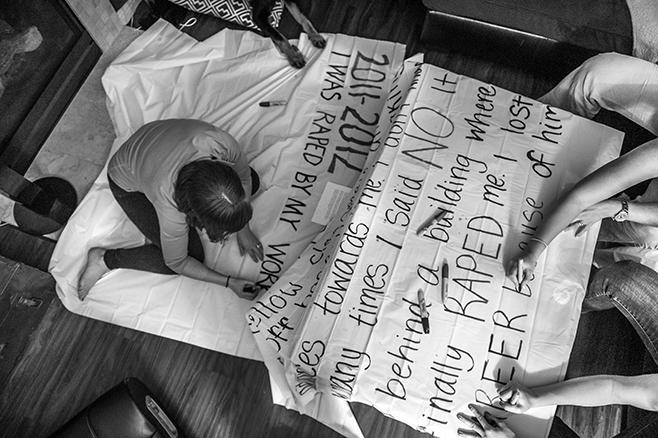 2011-2012
I WAS RAPED BY MY WORK
towards me. I don't
many times I said NO It
behind a building where
finally RAPED me. I lost
CAREER because of him